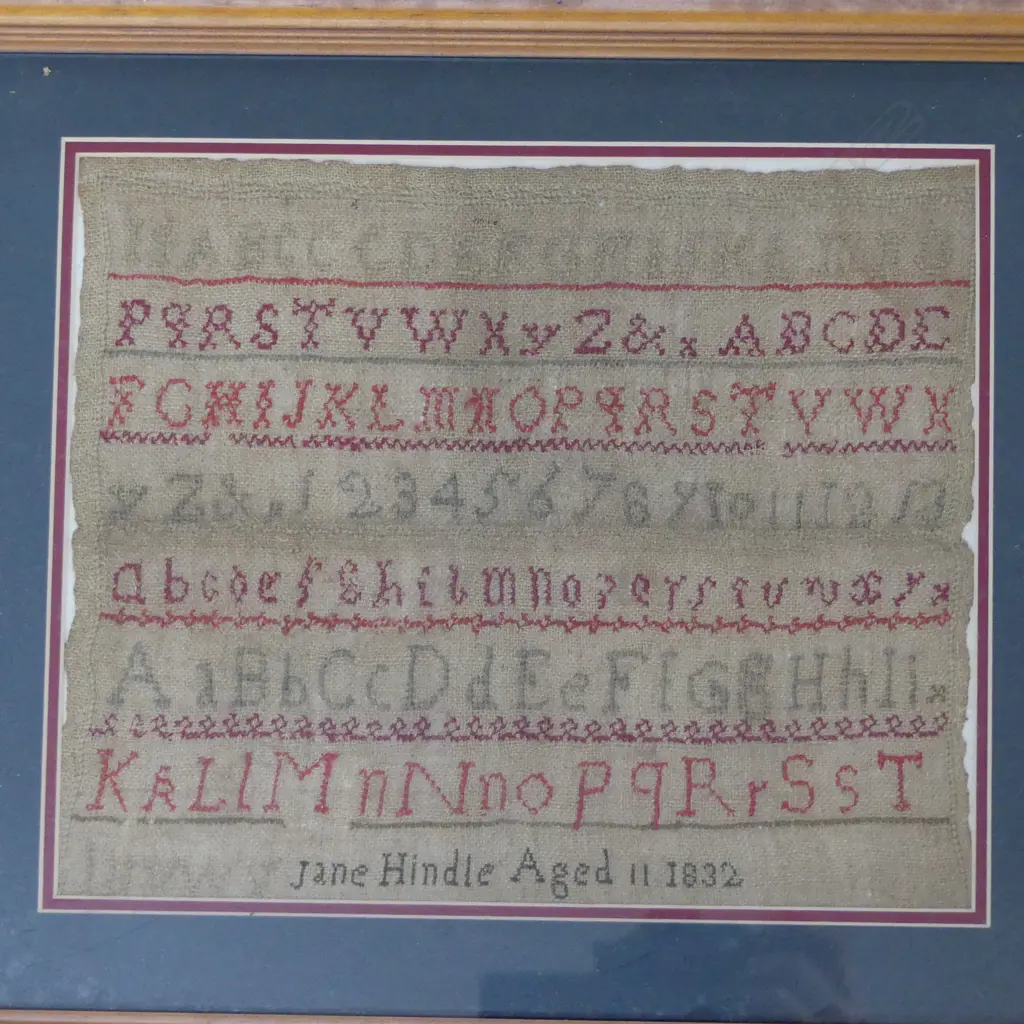 P q R S T V W X y Z & x A B C D E
F G H I J K L M N O P q R S T V W X
y Z & 1 2 3 4 5 6 7 8 9 10 11 12 13
a b c d e f g h i l m n o p e r s t u v x y x
A a B b C c D d E e F f G g H h I i x
K k L l M n N n o p q R r S s T
Jane Hindle Aged 11 1832